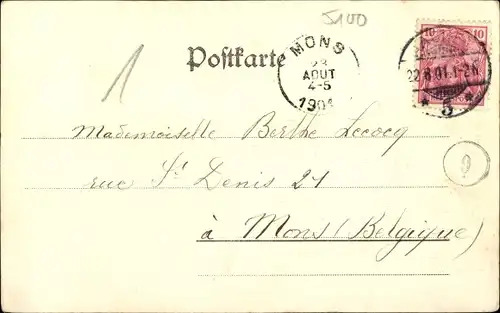 5100
1
Postkarte
MONS
23
AOUT
4-5
1901
10 10
22.8.01.1-2N.
* 5 *
Mademoiselle Berthe Lecocq
rue St Denis 21
à Mons (Belgique)